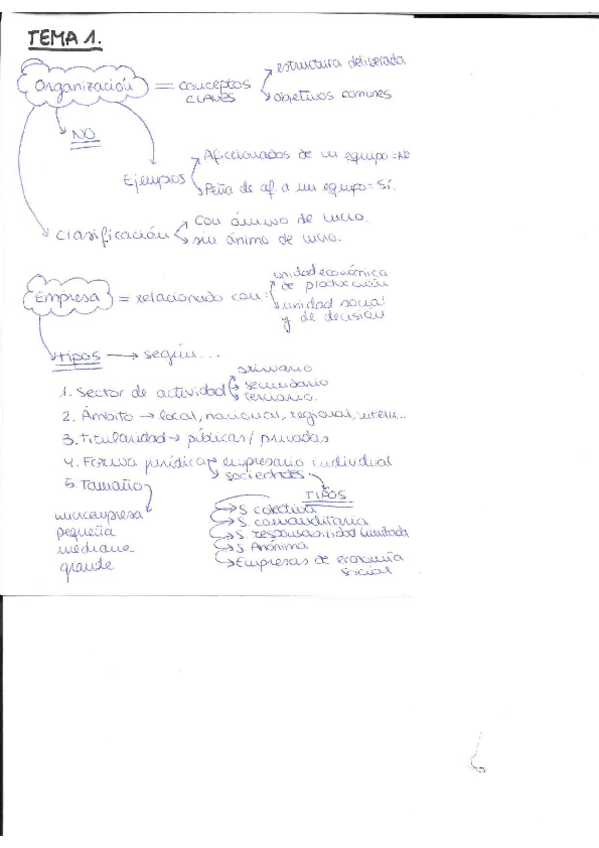 TEMA 1.
Organización = conceptos CLAVES
estructura deliberada
objetivos comunes
NO
Ejemplos
Aficionados de un equipo = NO
Peña de af. a un equipo = Sí.
Clasificación
Con ánimo de lucro.
sin ánimo de lucro.
Empresa = relacionado con:
unidad económica
de producción
unidad social
y de decisión
tipos → según...
1. Sector de actividad
primario
secundario
terciario.
2. Ámbito → local, nacional, regional, intern...
3. Titularidad → públicas / privadas
4. Forma jurídica → empresario individual
sociedades
5. Tamaño
microempresa
pequeña
mediana
grande
TIPOS
S colectiva
S comanditaria
S. responsabilidad limitada
S. Anónima
Empresas de economía
social